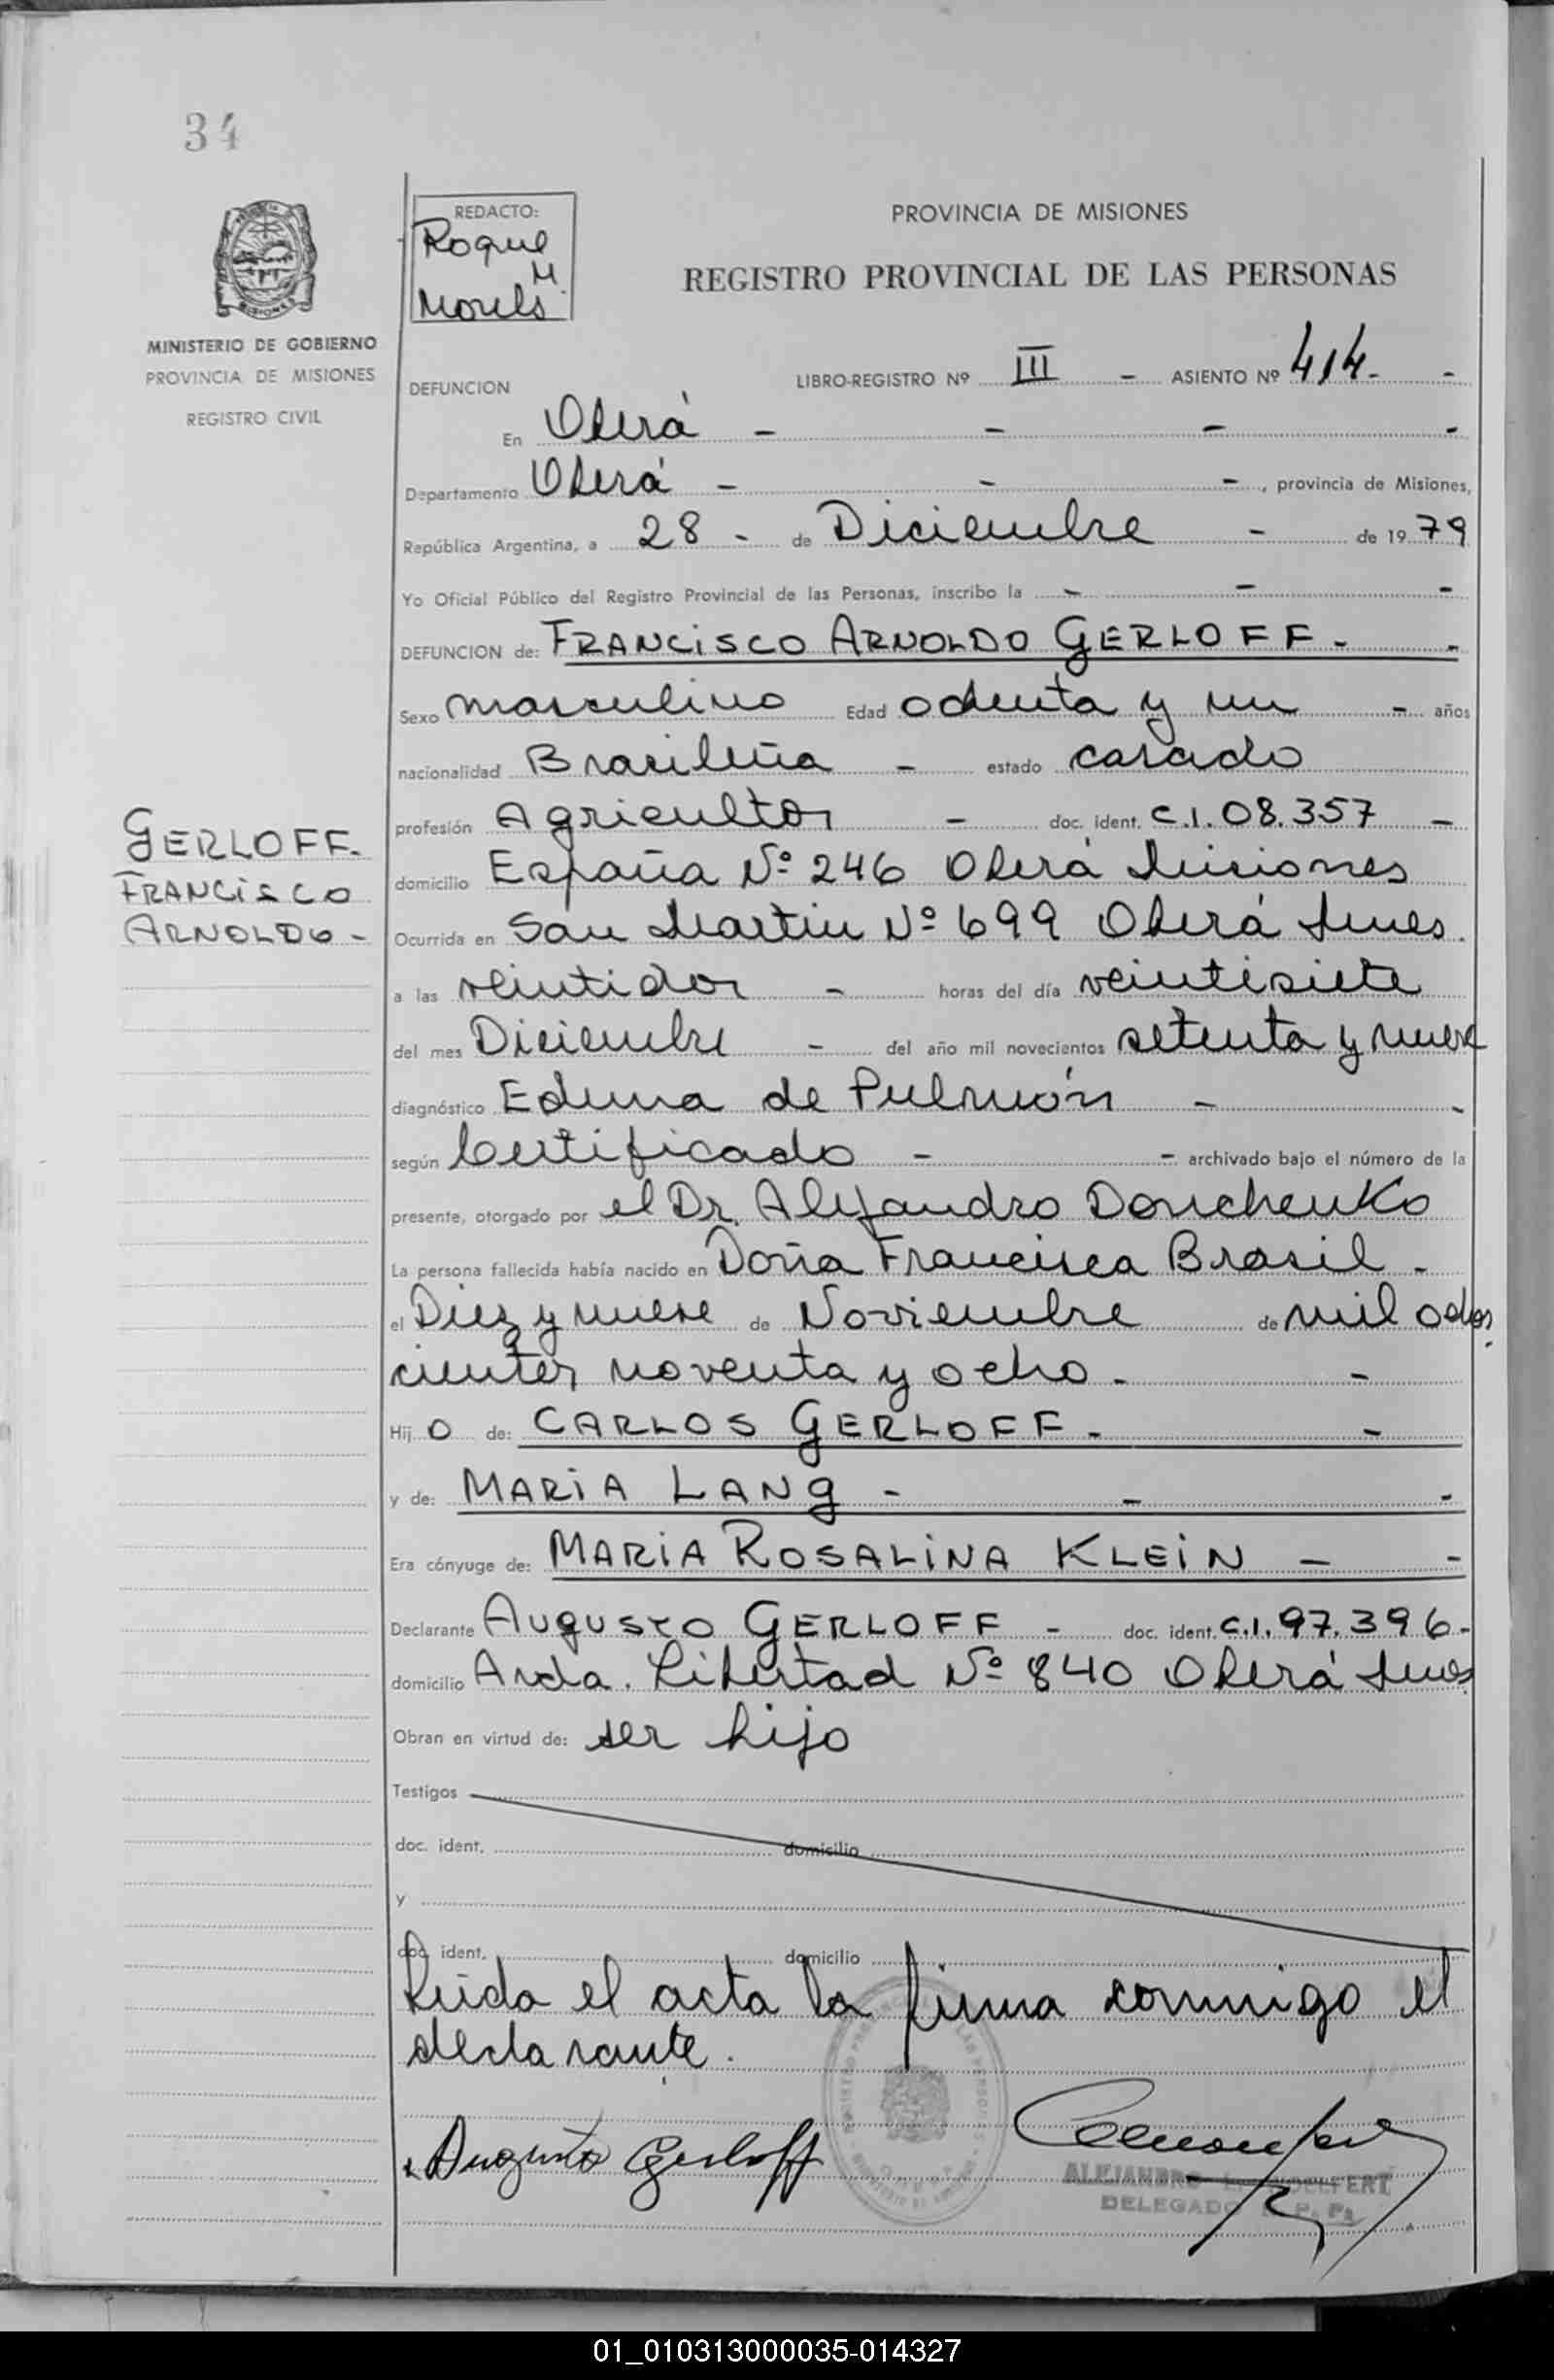 34
REDACTO:
Roque
M.
MINISTERIO DE GOBIERNO
PROVINCIA DE MISIONES
REGISTRO CIVIL
PROVINCIA DE MISIONES
REGISTRO PROVINCIAL DE LAS PERSONAS
DEFUNCION LIBRO-REGISTRO Nº III - ASIENTO Nº 414. -
En Oberá - - - -
Departamento Oberá - - -, provincia de Misiones,
República Argentina, a 28 - de Diciembre - de 1979
Yo Oficial Público del Registro Provincial de las Personas, inscribo la - - -
DEFUNCION de: FRANCISCO ARNOLDO GERLOFF - -
Sexo masculino Edad ochenta y un - años
nacionalidad Brasileña - estado casado
profesión Agricultor - doc. ident. C.I. 08.357 -
GERLOFF.
FRANCISCO
ARNOLDO -
domicilio España Nº 246 Oberá Misiones
Ocurrida en San Martin Nº 699 Oberá Mnes.
a las veintidos - horas del día veintisiete
del mes Diciembre - del año mil novecientos setenta y nueve
diagnóstico Edema de Pulmón - -
según Certificado - - archivado bajo el número de la
presente, otorgado por el Dr. Alejandro Donchenko
La persona fallecida había nacido en Doña Francisca Brasil -
el Diez y nueve de Noviembre de mil ochos
cientos noventa y ocho - -
Hijo de: CARLOS GERLOFF - -
y de: MARIA LANG - - -
Era cónyuge de: MARIA ROSALINA KLEIN - -
Declarante AUGUSTO GERLOFF - doc. ident. C.I. 97.396 -
domicilio Avda. Libertad Nº 840 Oberá Mnes
Obran en virtud de: ser hijo
Testigos
doc. ident. domicilio
y
doc. ident. domicilio
Leida el acta la firma conmigo el
declarante.
Augusto Gerloff
ALEJANDRO
DELEGADO R. P. P.
01_010313000035-014327